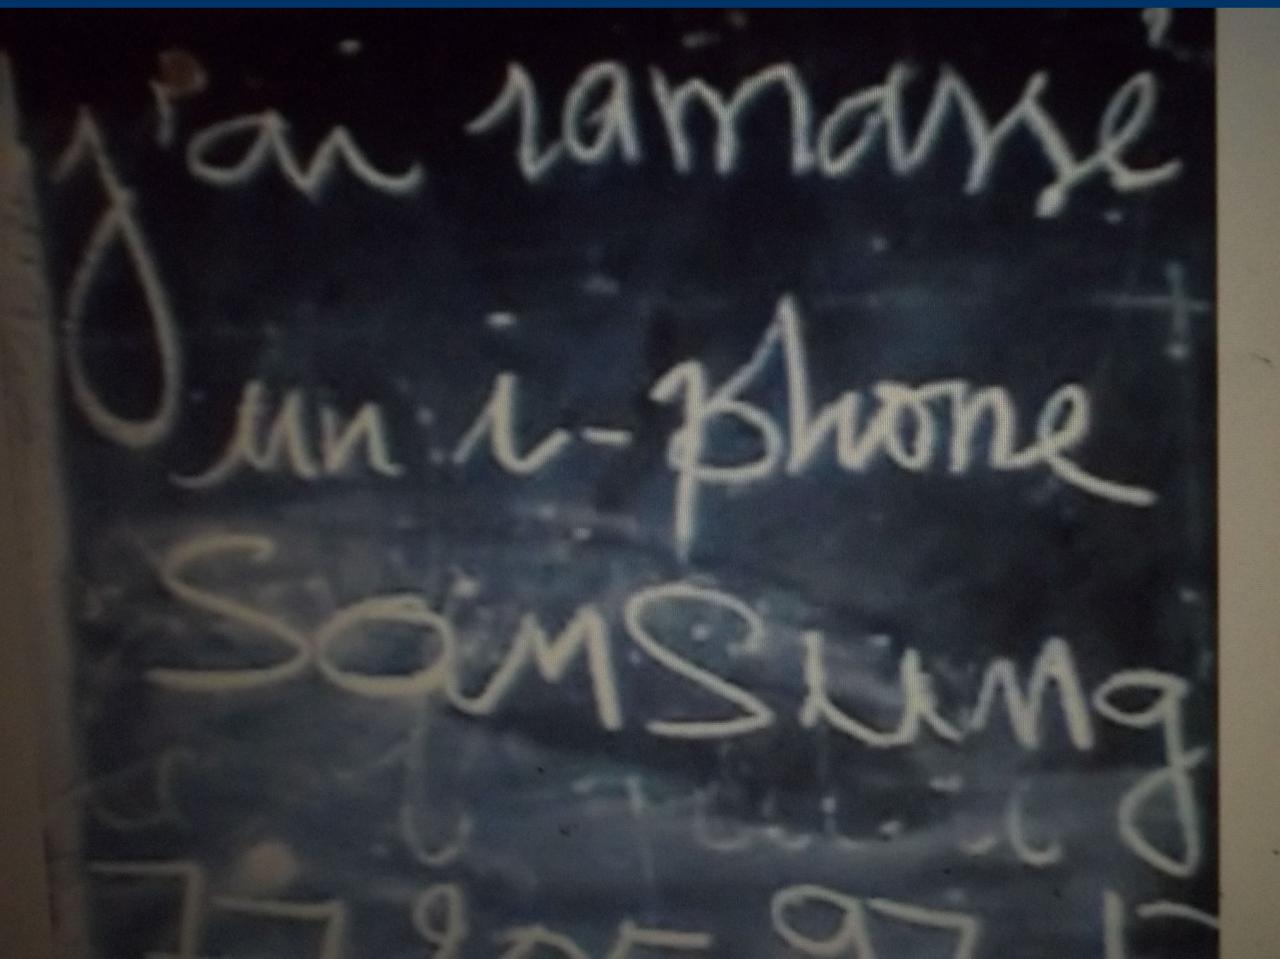 j'ai ramassé
un i-phone
Samsung